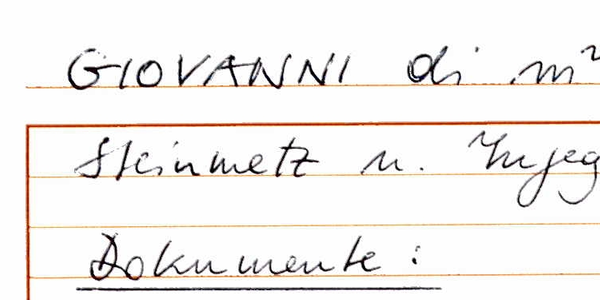 GIOVANNI di
Steinmetz u.
Dokumente: